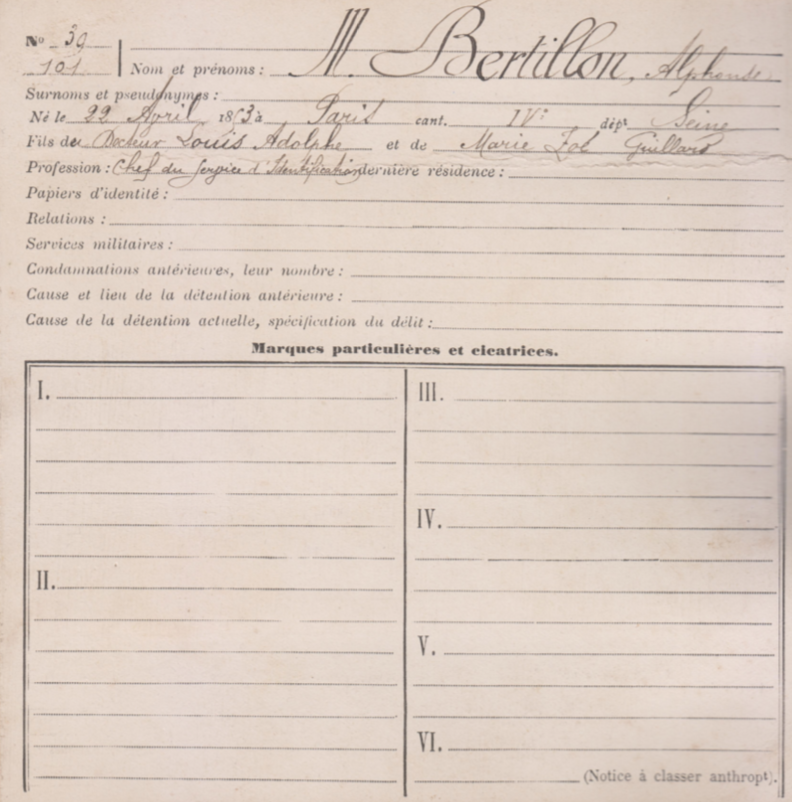 No 39
101 Nom et prénoms : M. Bertillon, Alphonse
Surnoms et pseudonymes :
Né le 22 Avril 1853 à Paris cant. IVe dépt Seine
Fils de Docteur Louis Adolphe et de Marie Zoé Guillard
Profession : Chef du Service d'Identification dernière résidence :
Papiers d'identité :
Relations :
Services militaires :
Condamnations antérieures, leur nombre :
Cause et lieu de la détention antérieure :
Cause de la détention actuelle, spécification du délit :
Marques particulières et cicatrices.
I.
II.
III.
IV.
V.
VI.
(Notice à classer anthropt).